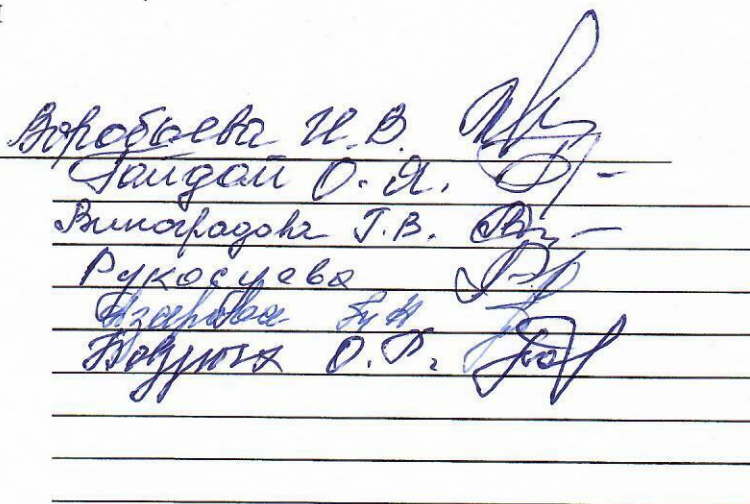 Воробьева Н.В.
Гайдай О.Я.
Виноградова Г.В.
Рукосуева
Азарова
О.Г.